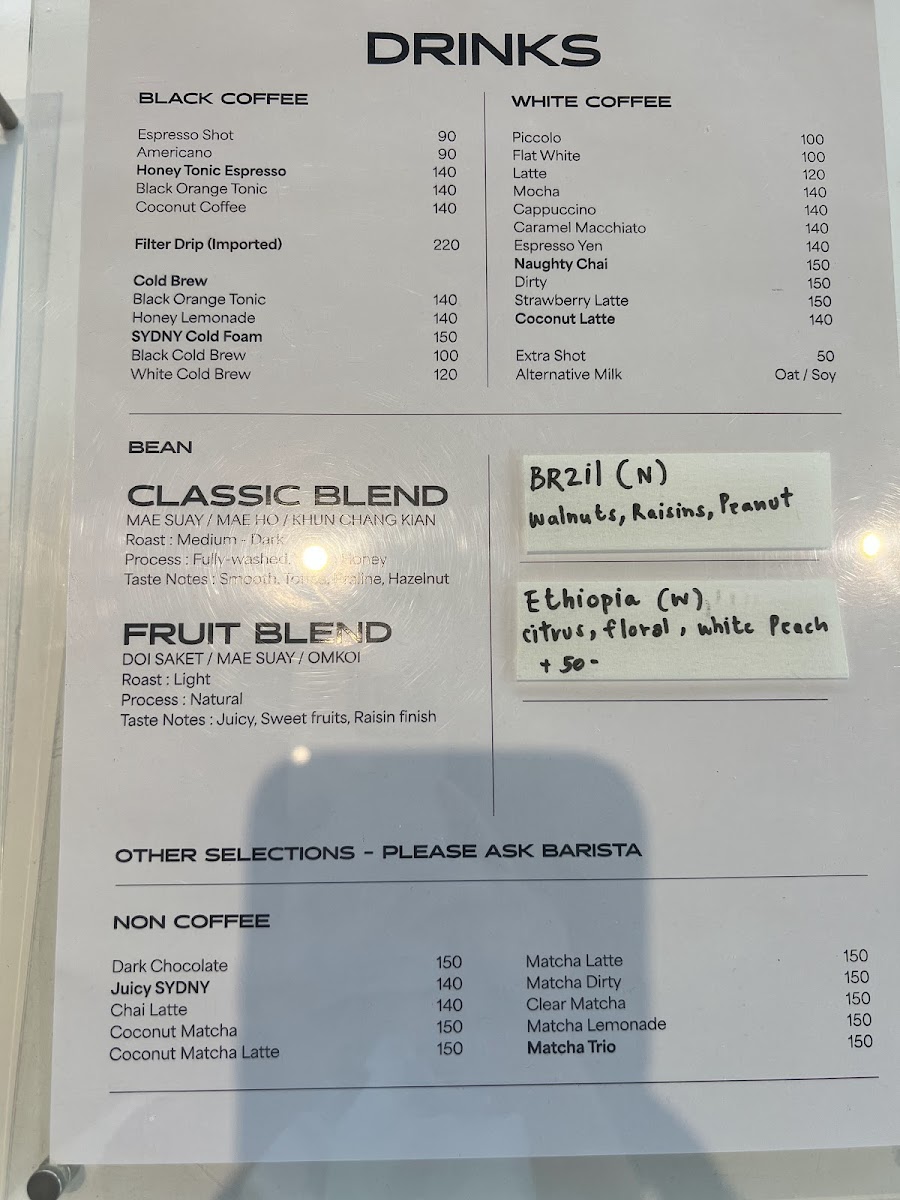 DRINKS
BLACK COFFEE
Espresso Shot 90
Americano 90
Honey Tonic Espresso 140
Black Orange Tonic 140
Coconut Coffee 140
Filter Drip (Imported) 220
Cold Brew
Black Orange Tonic 140
Honey Lemonade 140
SYDNY Cold Foam 150
Black Cold Brew 100
White Cold Brew 120
WHITE COFFEE
Piccolo 100
Flat White 100
Latte 120
Mocha 140
Cappuccino 140
Caramel Macchiato 140
Espresso Yen 140
Naughty Chai 150
Dirty 150
Strawberry Latte 150
Coconut Latte 140
Extra Shot 50
Alternative Milk Oat / Soy
BEAN
CLASSIC BLEND
MAE SUAY / MAE HO / KHUN CHANG KIAN
Roast : Medium - Dark
Process : Fully-washed, Honey
Taste Notes : Smooth, Praline, Hazelnut
FRUIT BLEND
DOI SAKET / MAE SUAY / OMKOI
Roast : Light
Process : Natural
Taste Notes : Juicy, Sweet fruits, Raisin finish
BRZil (N)
walnuts, Raisins, Peanut
Ethiopia (W)
citrus, floral, white Peach
+ 50-
OTHER SELECTIONS - PLEASE ASK BARISTA
NON COFFEE
Dark Chocolate 150
Juicy SYDNY 140
Chai Latte 140
Coconut Matcha 150
Coconut Matcha Latte 150
Matcha Latte 150
Matcha Dirty 150
Clear Matcha 150
Matcha Lemonade 150
Matcha Trio 150